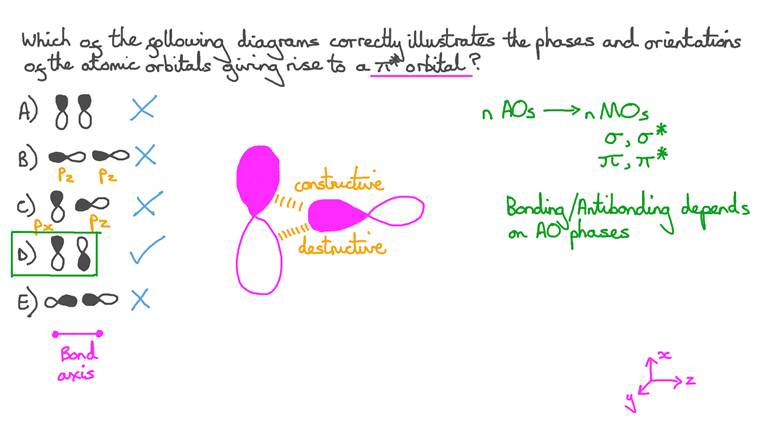 Which of the following diagrams correctly illustrates the phases and orientations
of the atomic orbitals giving rise to a π* orbital?
A)
B)
Pz Pz
C)
Px Pz
D)
E)
Bond
axis
constructive
destructive
n AOs → n MOs
σ, σ*
π, π*
Bonding/Antibonding depends
on AO phases
x
y z